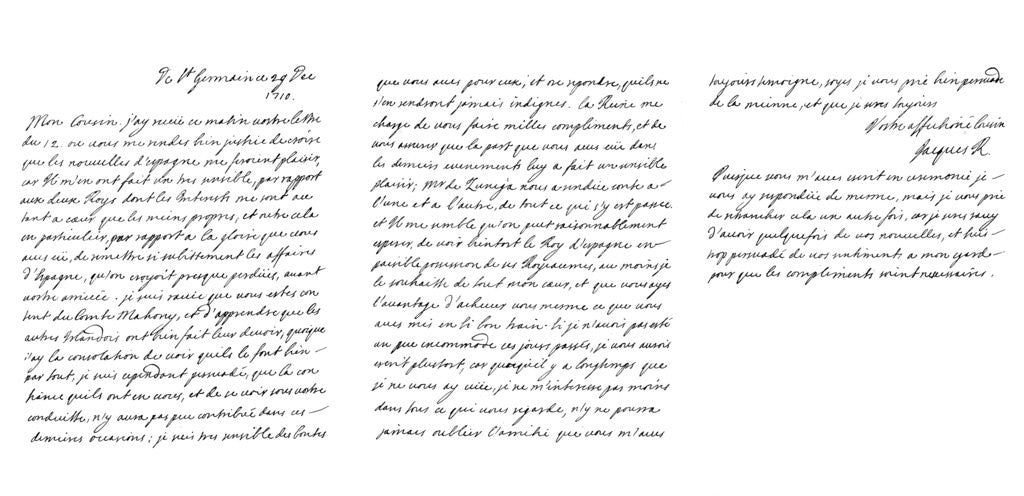 De St Germain ce 29 Dec
1710.
Mon Cousin. j'ay receüe ce matin vostre lettre
du 12. ou vous me rendes bien justice de croire
que les nouvelles d'espagne me feroient plaisir,
car Il m'en ont fait un tres sensible, par rapport
aux deux Roys dont les Interests me sont au
tant a cœur que les miens propres, et outre cela
en particulier, par rapport a la gloire que vous
aves eüe, de remettre si subittement les affaires
d'Espagne, qu'on croyoit presque perdües, avant
vostre arriveé. je suis ravie que vous estes con
tent du Comte Mahony, et d'apprendre que les
autres Irlandois ont bien fait leur devoir, quoique
j'ay la consolation de voir quils le font bien
par tout, je suis cependant persuadé, que la con
fiance quils ont en vous, et de se voir sous vostre
conduitte, n'y aura pas peu contribüé dans ces
dernieres occasions; je suis tres sensible des bontes
que vous aves pour eux, et ose repondre, quils ne
s'en rendront jamais indignes. la Reine me
charge de vous faire milles compliments, et de
vous assurer que la part que vous aves eüe dans
les derniers evenements luy a fait un sensible
plaisir; Mr de Zuneja nous a rendüe conte a
l'une et a l'autre, de tout ce qui s'y est passé.
et Il me semble qu'on peut raisonnablement
esperer, de voir bientost le Roy d'espagne en
paisible possession de ses Royeaumes, au moins je
le souhaitte de tout mon cœur, et que vous ayes
l'avantage d'achever vous mesme ce que vous
aves mis en si bon train. Si je n'avois pas esté
un peu incommodé ces jours passés, je vous aurois
escrit plustost, car quoiqu'il y a longtemps que
je ne vous ay veüe, je ne m'interesse pas moins
dans tous ce qui vous regarde, n'y ne pourra
jamais oublier l'amitié que vous m'aves
toujours temoigne, soyes je vous prié bien persuadé
de la mienne, et que je seres toujours
Vostre affectioné Cousin
Jacques R.
Puisque vous m'aves escrit en ceremonie je
vous ay respondüe de mesme, mais je vous prié
de retrancher cela un autre fois, car je seres ravy
d'avoir quelquefois de vos nouvelles, et suis
trop persuadé de vos sentiments a mon egard
pour que les compliments soient necessaires.